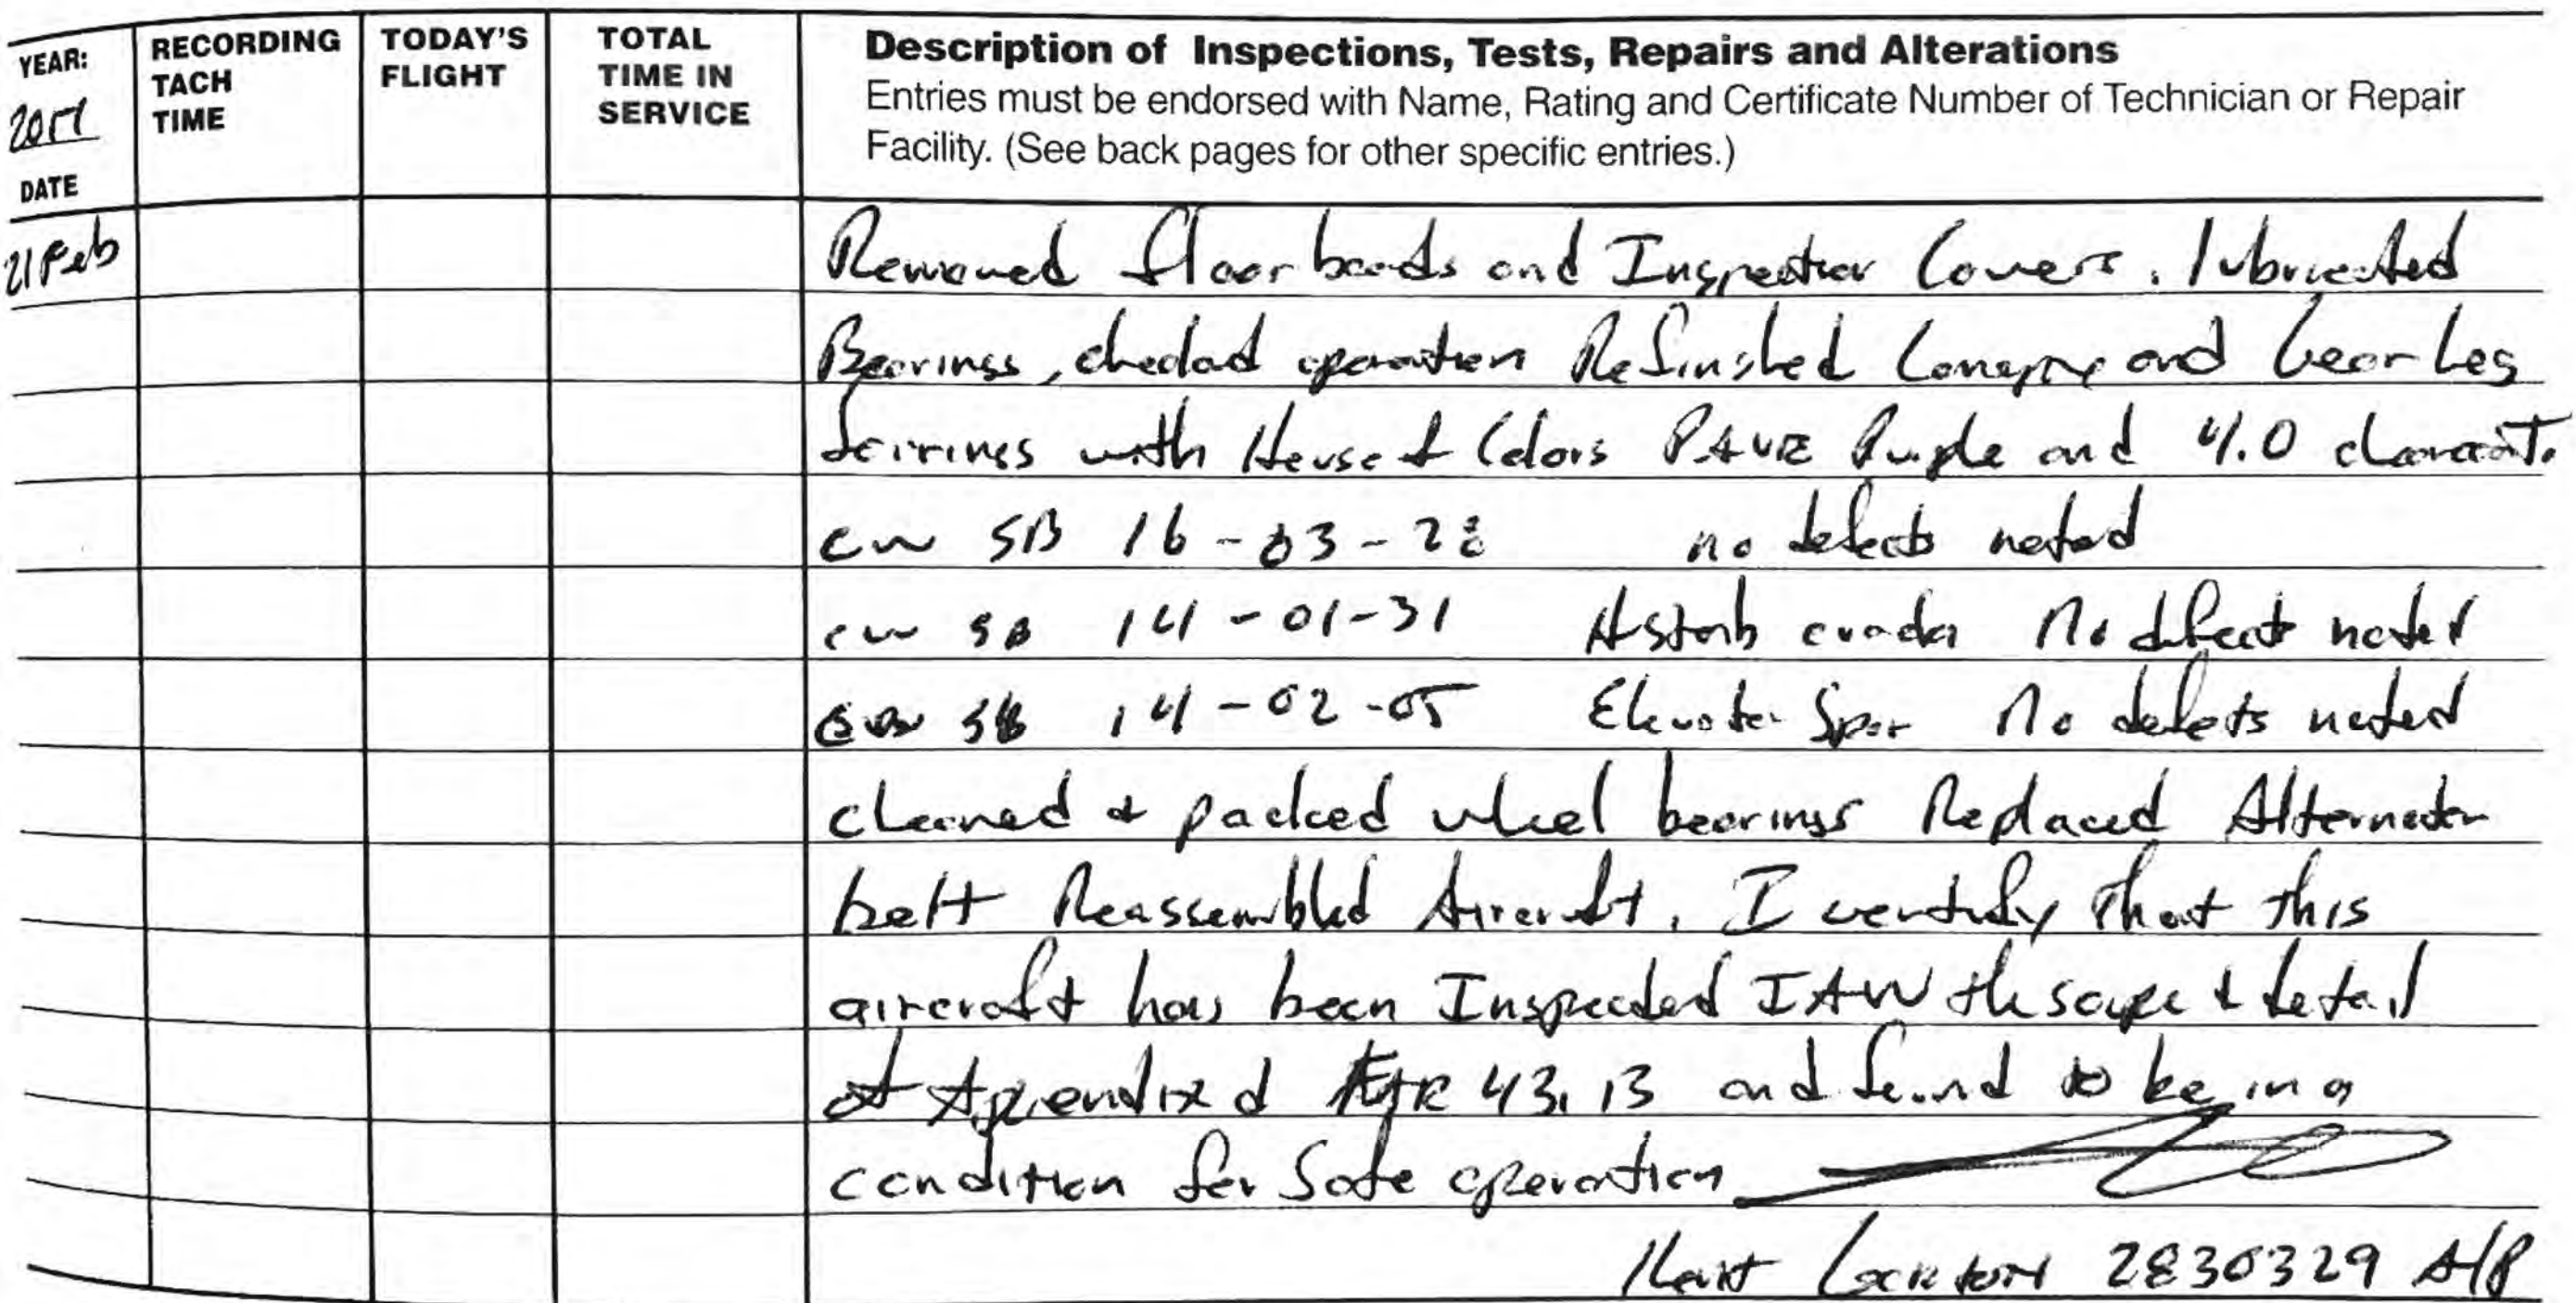 YEAR: RECORDING TACH TIME TODAY'S FLIGHT TOTAL TIME IN SERVICE Description of Inspections, Tests, Repairs and Alterations
2017 Entries must be endorsed with Name, Rating and Certificate Number of Technician or Repair
DATE Facility. (See back pages for other specific entries.)
21 Feb Removed floor boards and Inspection Covers. lubricated
Bearings, checked operation Refinished and Gear Leg
fairings with House of Colors PAVE Purple and 4.0 clearcoat.
cw SB 16-03-28 no defects noted
cw SB 14-01-31 H stab No defects noted
cw SB 14-02-05 Elevator Spar No defects noted
cleaned & packed wheel bearings Replaced Alternator
belt Reassembled Aircraft. I certify that this
aircraft has been Inspected IAW the scope & detail
Appendix d FAR 43.13 and found to be in a
condition for safe operation
2830329 A/P